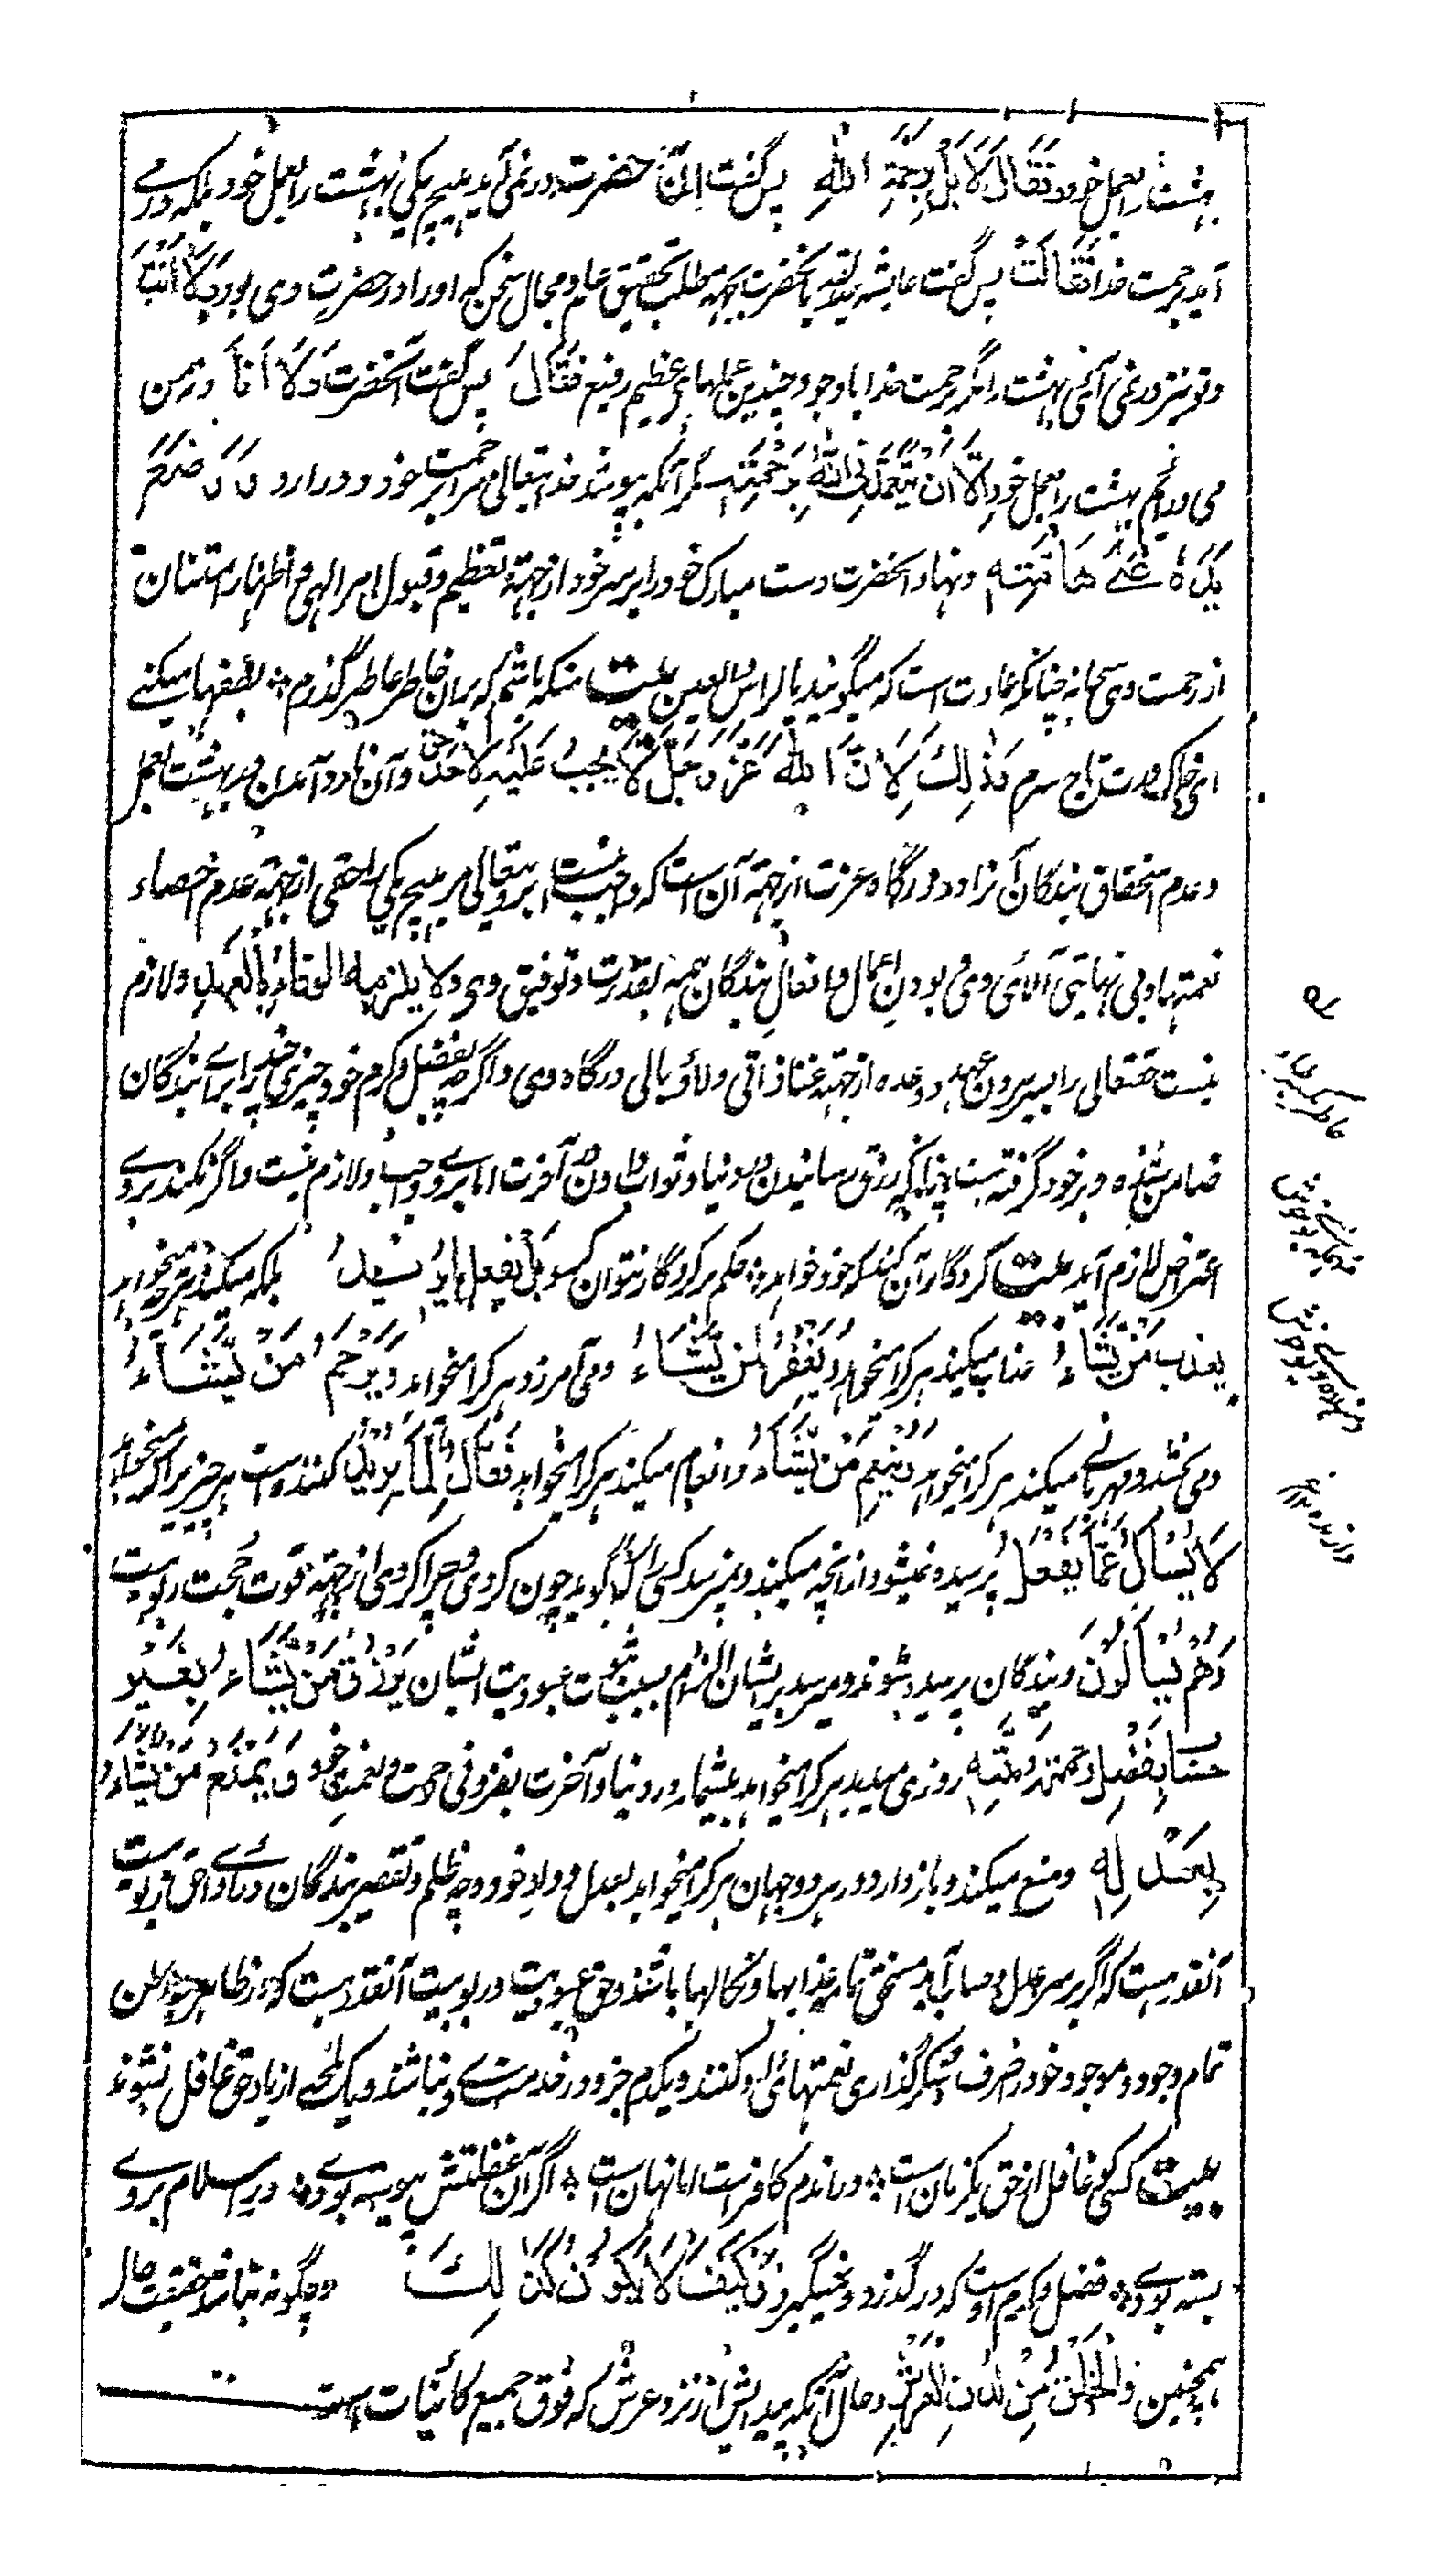 بهشت را بعمل خود فَقَالَ لَا بَلْ بِرَحْمَةِ اللهِ پس گفت آن حضرت در نمی آید هیچ یکی بهشت را بعمل خود بلکه در می
آید برحمت خدا فَقَالَتْ پس گفت عایشه صدیقه بآنحضرت بجهت طلب تحقیق عام و مجال سخن که او را در حضرت وی بود وَلَا أَنْتَ
و تو نیز در نمی آئی بهشت را مگر برحمت خدا با وجود چندین عملهای عظیم رفیع فَقَالَ پس گفت آنحضرت وَلَا أَنَا و نه من
می در آیم بهشت را بعمل خود إِلَّا أَنْ يَتَغَمَّدَنِيَ اللهُ بِرَحْمَتِهِ مگر آنکه بپوشد خدایتعالی مرا برحمت خود و در آرد وَوَضَعَ
يَدَهُ عَلَى هَامَتِهِ و نهاد آنحضرت دست مبارک خود را بر سر خود از جهت تعظیم و قبول امر الهی و اظهار امتنان
از رحمت وی سبحانه چنانکه عادت است که میگویند بالراس والعین بیت منکه باشم که بران خاطر عاطر گذرم لطفها میکنی
ای خاک درت تاج سرم وَذٰلِكَ لِأَنَّ اللهَ عَزَّ وَجَلَّ لَا يَجِبُ عَلَيْهِ لِأَحَدٍ حَقٌّ و آن نا در آمدن در بهشت بعمل
و عدم استحقاق بندگان آنرا در درگاه عزت از جهت آن است که واجب نیست بر ویتعالی مر هیچ یکی را حقی از جهت عدم احصاء
نعمتها و بی نهایتی آلای وی و بودن اعمال و افعال بندگان همه بقدرت و توفیق وی وَلَا يَلْزَمُهُ الْوَفَاءُ بِالْعَهْدِ و لازم
نیست حقتعالی را بسر بردن عهد و وعده از جهت غناء ذاتی و لاؤبالی درگاه وی و اگر چه بفضل و کرم خود چیزی چند را برای بندگان
ضامن شده و بر خود گرفته است چنانکه رزق رسانیدن در دنیا و ثواب دادن در آخرت اما بروی واجب و لازم نیست و اگر نکند بروی
اعتراض لازم آید بیت کردگار آن کند که خود خواهد حکم بر کردگار نتوان کرد بَلْ يَفْعَلُ مَا يُرِيدُ بلکه میکند هر چه میخواهد
يُعَذِّبُ مَنْ يَشَاءُ عذاب میکند هر کرا میخواهد وَيَغْفِرُ لِمَنْ يَشَاءُ و می آمرزد هر کرا میخواهد وَيَرْحَمُ مَنْ يَشَاءُ
و می بخشد و مهربانی میکند هر کرا میخواهد وَيُنْعِمُ مَنْ يَشَاءُ و انعام میکند هر کرا میخواهد فَعَّالٌ لِمَا يُرِيدُ کننده است هر چیز را که میخواهد
لَا يُسْأَلُ عَمَّا يَفْعَلُ پرسیده نمیشود از آنچه میکند و نمیرسد کسی را که گوید چون کردی و چرا کردی از جهت قوت حجت ربوبیت
وَهُمْ يُسْأَلُونَ و بندگان پرسیده میشوند و میرسد بر ایشان الزام بسبب ثبوت عبودیت ایشان يَرْزُقُ مَنْ يَشَاءُ بِغَيْرِ
حِسَابٍ بِفَضْلِ رَحْمَتِهِ وَمَنِّهِ روزی میدهد هر کرا میخواهد بیشمار در دنیا و آخرت بفزونی رحمت و نعمت خود وَيَمْنَعُ مَنْ يَشَاءُ
بِعَدْلِهِ و منع میکند و باز دارد در هر دو جهان هر کرا میخواهد بعدل و داد خود و چه ظلم و تقصیر بندگان در ادای حق ربوبیت
آنقدر هست که اگر بر سر عدل و حساب آید مستحق تمام عذابها و نکالها باشند و حق عبودیت در ربوبیت آنقدر هست که در ظاهر و باطن
تمام وجود و موجود خود در صرف شکرگذاری نعمتهای او کنند و یکدم جز در خدمت وی نباشند و یک لمحه از یاد حق غافل نشوند
بیت کسی کو غافل از حق یک زمان است در اندم کافر است اما نهان است اگر آن غفلتش پیوسته بودی در اسلام بروی
بسته بودی فضل و کرم اوست که در گذرد و نمیگیرد وَكَيْفَ لَا يَكُونُ كَذٰلِكَ و چگونه نباشد حقیقت حال
همچنین وَالْخَلْقُ مِنْ لَدُنِ الْعَرْشِ و حال آنکه پیدایش از نزد عرش که فوق جمیع کائنات است